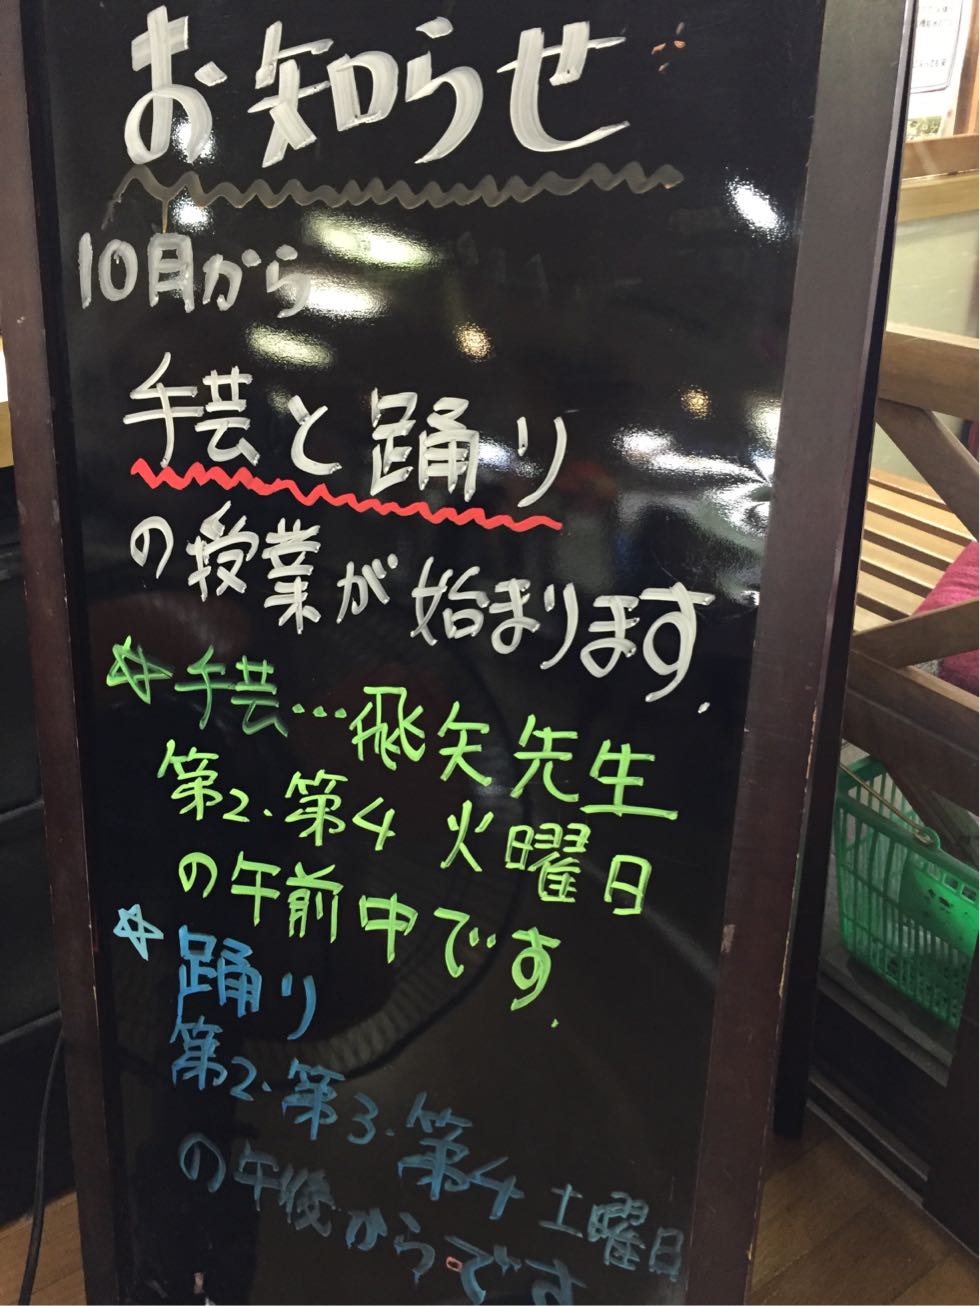 お知らせ
10月から
手芸と踊り
の授業が始まります.
☆手芸…飛矢先生
第2.第4 火曜日
の午前中です.
☆踊り
第2.第3.第4 土曜日
の午後からです